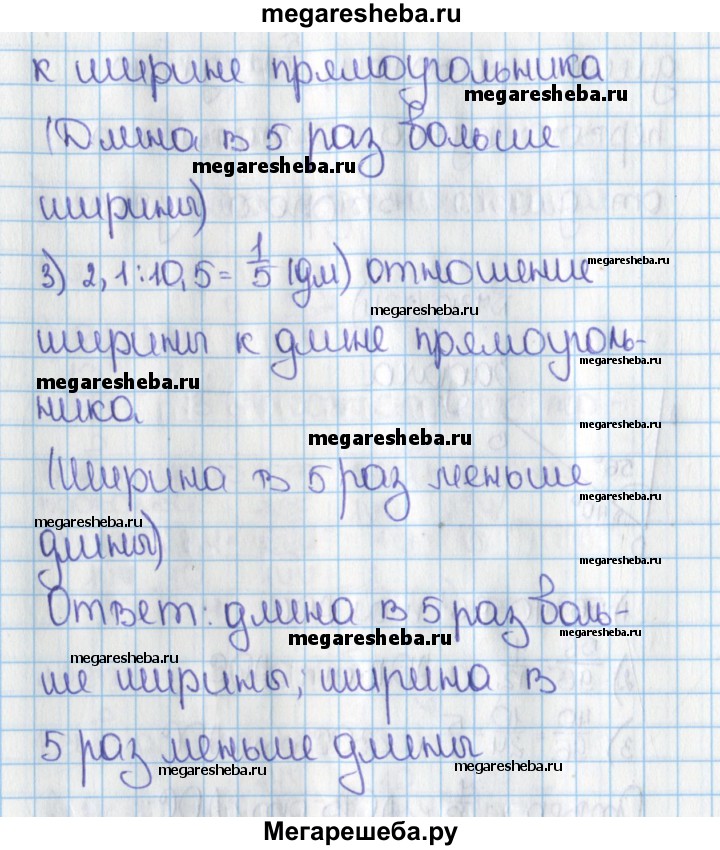 megaresheba.ru
к ширине прямоугольника
megaresheba.ru
(Длина в 5 раз больше
megaresheba.ru
ширины)
3) 2,1:10,5= 1/5 (дм) отношение
megaresheba.ru
megaresheba.ru
ширины к длине прямоуголь-
megaresheba.ru
megaresheba.ru
ника
megaresheba.ru
megaresheba.ru
(Ширина в 5 раз меньше
megaresheba.ru
megaresheba.ru
длины)
megaresheba.ru
Ответ: длина в 5 раз боль-
megaresheba.ru
megaresheba.ru
megaresheba.ru
ше ширины, ширина в
5 раз меньше длины
megaresheba.ru
megaresheba.ru
Мегарешеба.ру